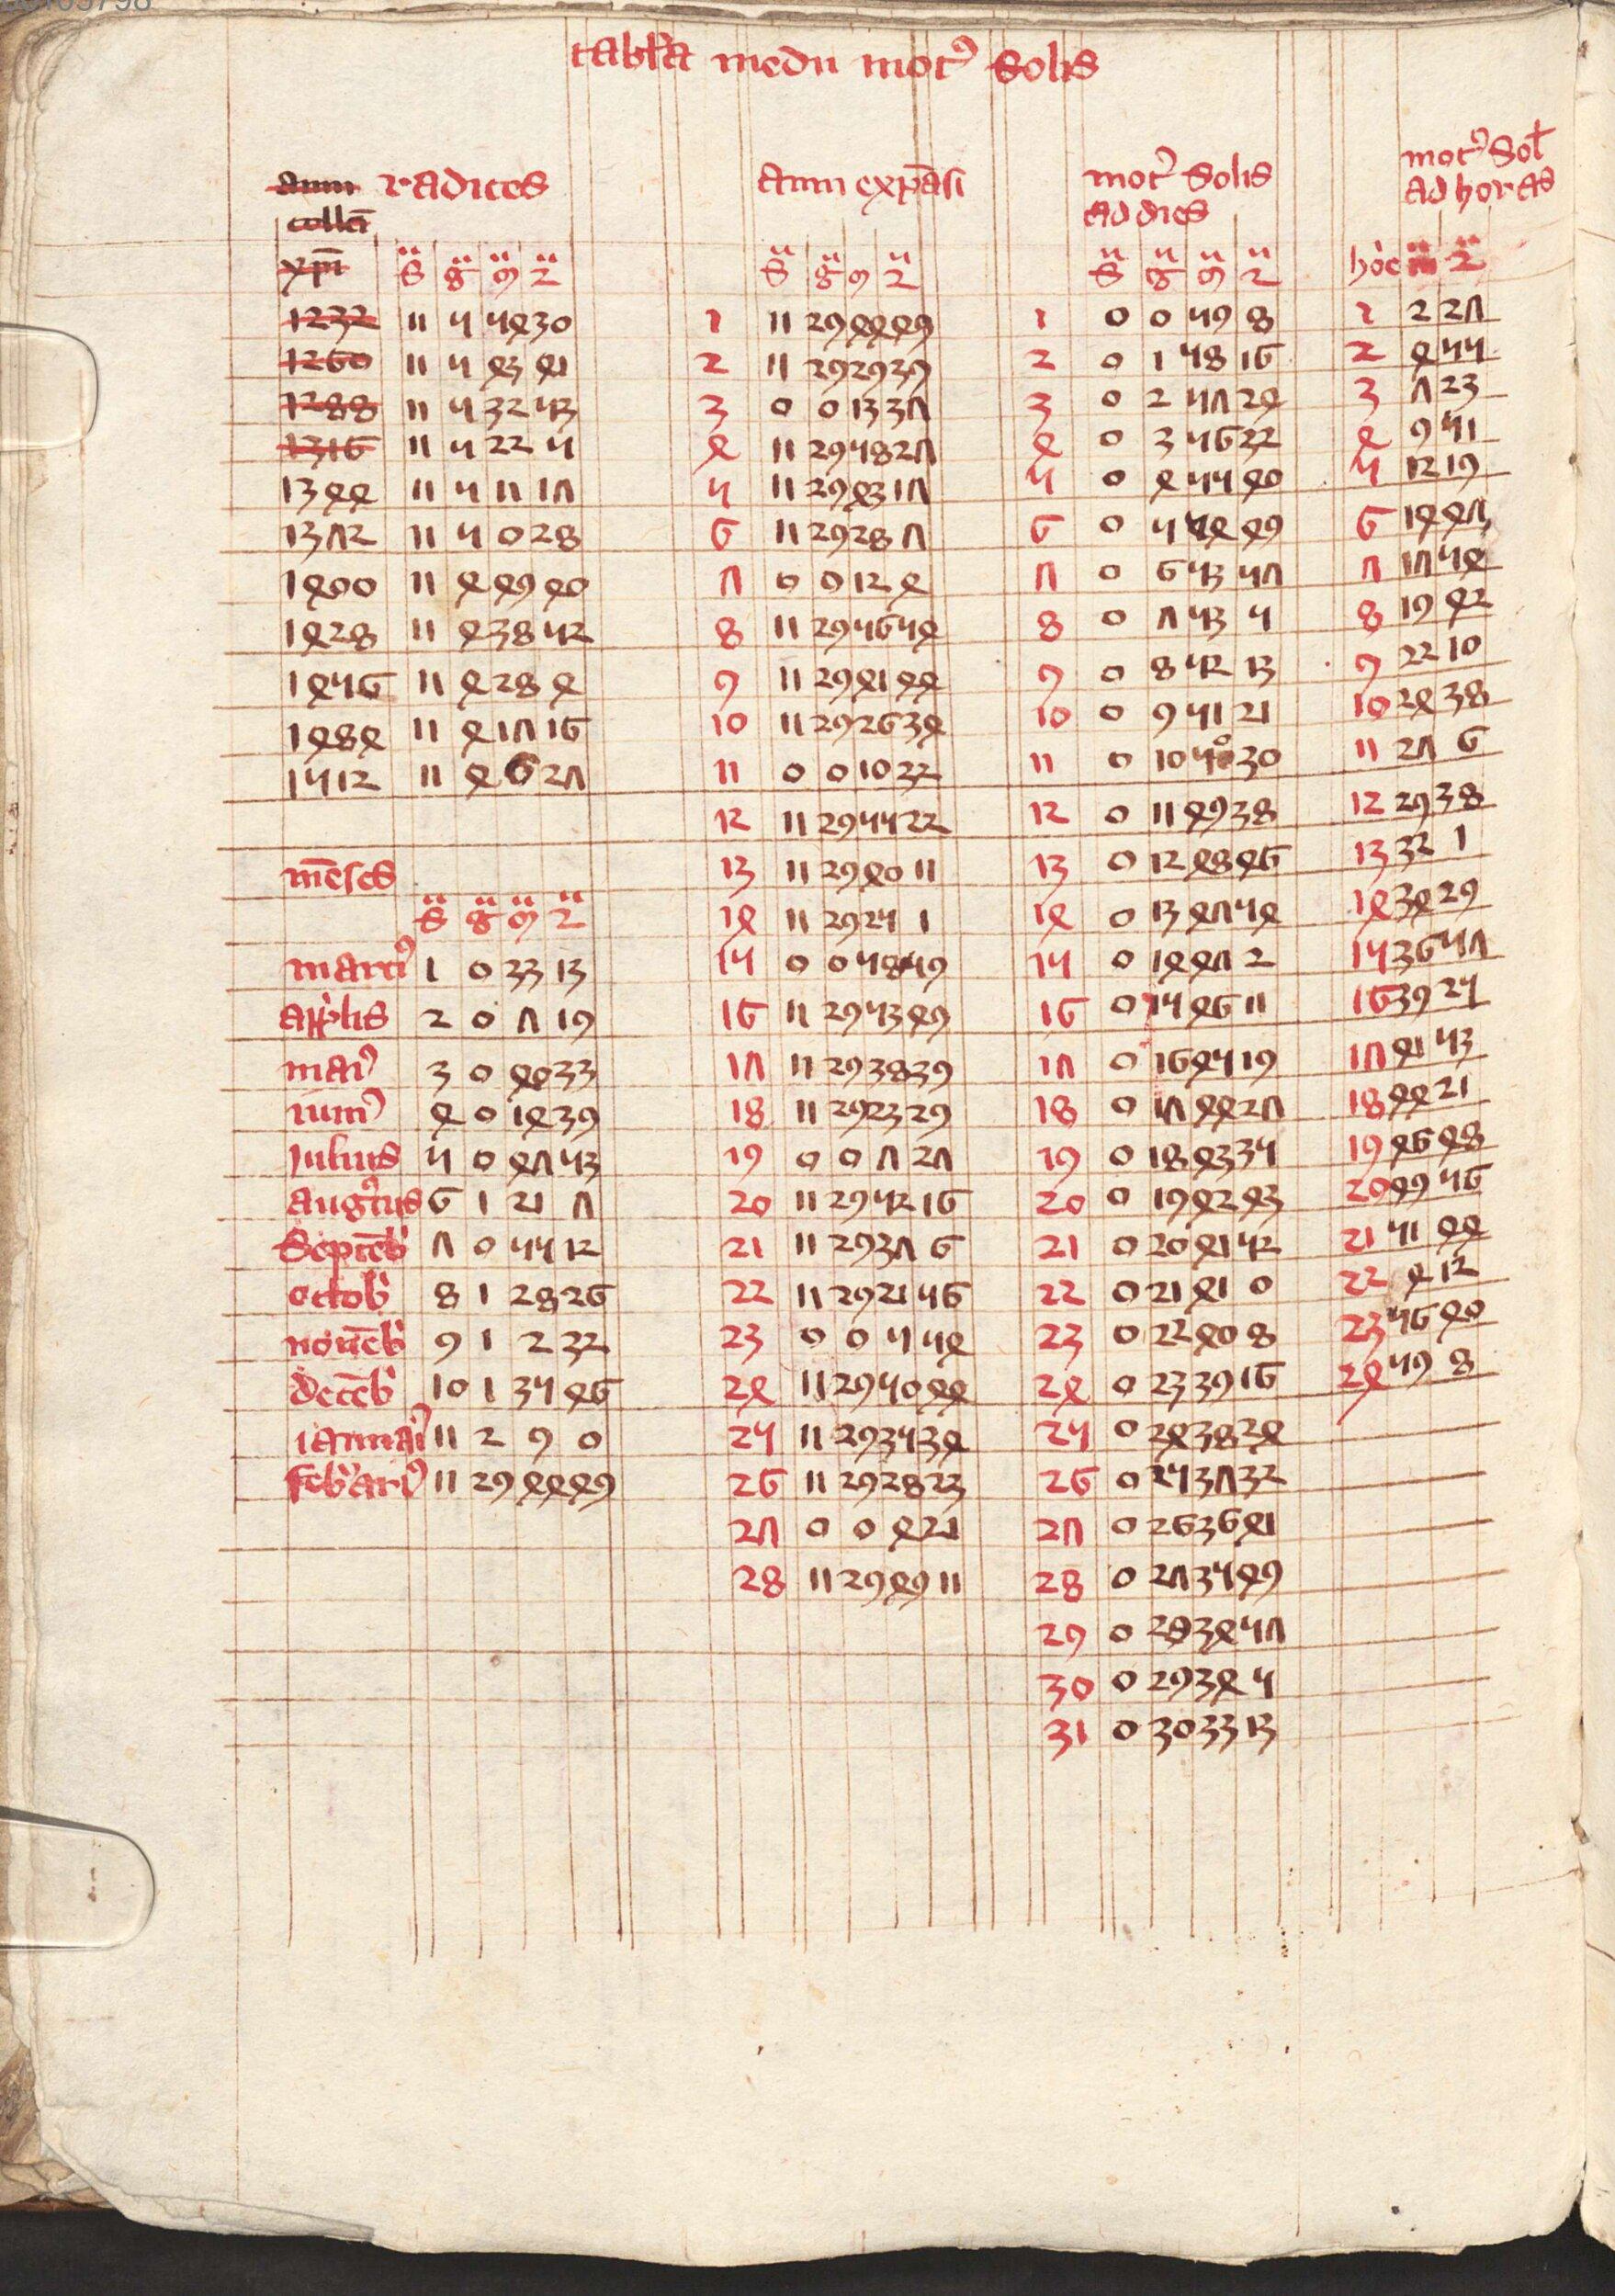 tabl'a medii mot9 Solis
anni radices
colla
xpi s g m 2
1232 11 5 54 30
1260 11 5 43 41
1288 11 5 32 53
1316 11 5 22 5
1344 11 5 11 17
1372 11 5 0 28
1400 11 4 49 40
1428 11 4 38 52
1456 11 4 28 4
1484 11 4 17 16
1512 11 4 6 27
mēses
s g m 2
marci9 1 0 33 13
aprlis 2 0 7 19
mai9 3 0 40 33
iuni9 4 0 14 39
Iulius 5 0 47 53
aug9tus 6 1 21 7
Septēb' 7 0 55 12
octob' 8 1 28 26
nouēb' 9 1 2 32
decēb' 10 1 35 46
ianuai9 11 2 9 0
feb'ari9 11 29 44 49
anni expāsi
s g m 2
1 11 29 44 49
2 11 29 29 39
3 0 0 13 37
4 11 29 58 27
5 11 29 43 17
6 11 29 28 7
7 0 0 12 4
8 11 29 56 54
9 11 29 41 44
10 11 29 26 34
11 0 0 10 32
12 11 29 55 22
13 11 29 40 11
14 11 29 25 1
15 0 0 58 59
16 11 29 53 49
17 11 29 38 39
18 11 29 23 29
19 0 0 7 27
20 11 29 52 16
21 11 29 37 6
22 11 29 21 56
23 0 0 5 54
24 11 29 50 44
25 11 29 35 34
26 11 29 28 23
27 0 0 4 21
28 11 29 49 11
mot9 Solis
ad dies
s g m 2
1 0 0 59 8
2 0 1 58 16
3 0 2 57 24
4 0 3 56 32
5 0 4 55 40
6 0 5 54 49
7 0 6 53 57
8 0 7 53 5
9 0 8 52 13
10 0 9 51 21
11 0 10 50 30
12 0 11 49 38
13 0 12 48 46
14 0 13 47 54
15 0 14 47 2
16 0 15 46 11
17 0 16 45 19
18 0 17 44 27
19 0 18 43 35
20 0 19 42 43
21 0 20 41 52
22 0 21 41 0
23 0 22 40 8
24 0 23 39 16
25 0 24 38 24
26 0 25 37 32
27 0 26 36 41
28 0 27 35 49
29 0 28 34 57
30 0 29 34 5
31 0 30 33 13
mot9 Sol
ad horas
hoe m 2
1 2 27
2 4 55
3 7 23
4 9 51
5 12 19
6 14 47
7 17 54
8 19 42
9 22 10
10 24 38
11 27 6
12 29 38
13 32 1
14 34 29
15 36 57
16 39 25
17 41 53
18 44 21
19 46 48
20 49 56
21 51 44
22 4 12
23 56 40
24 59 8